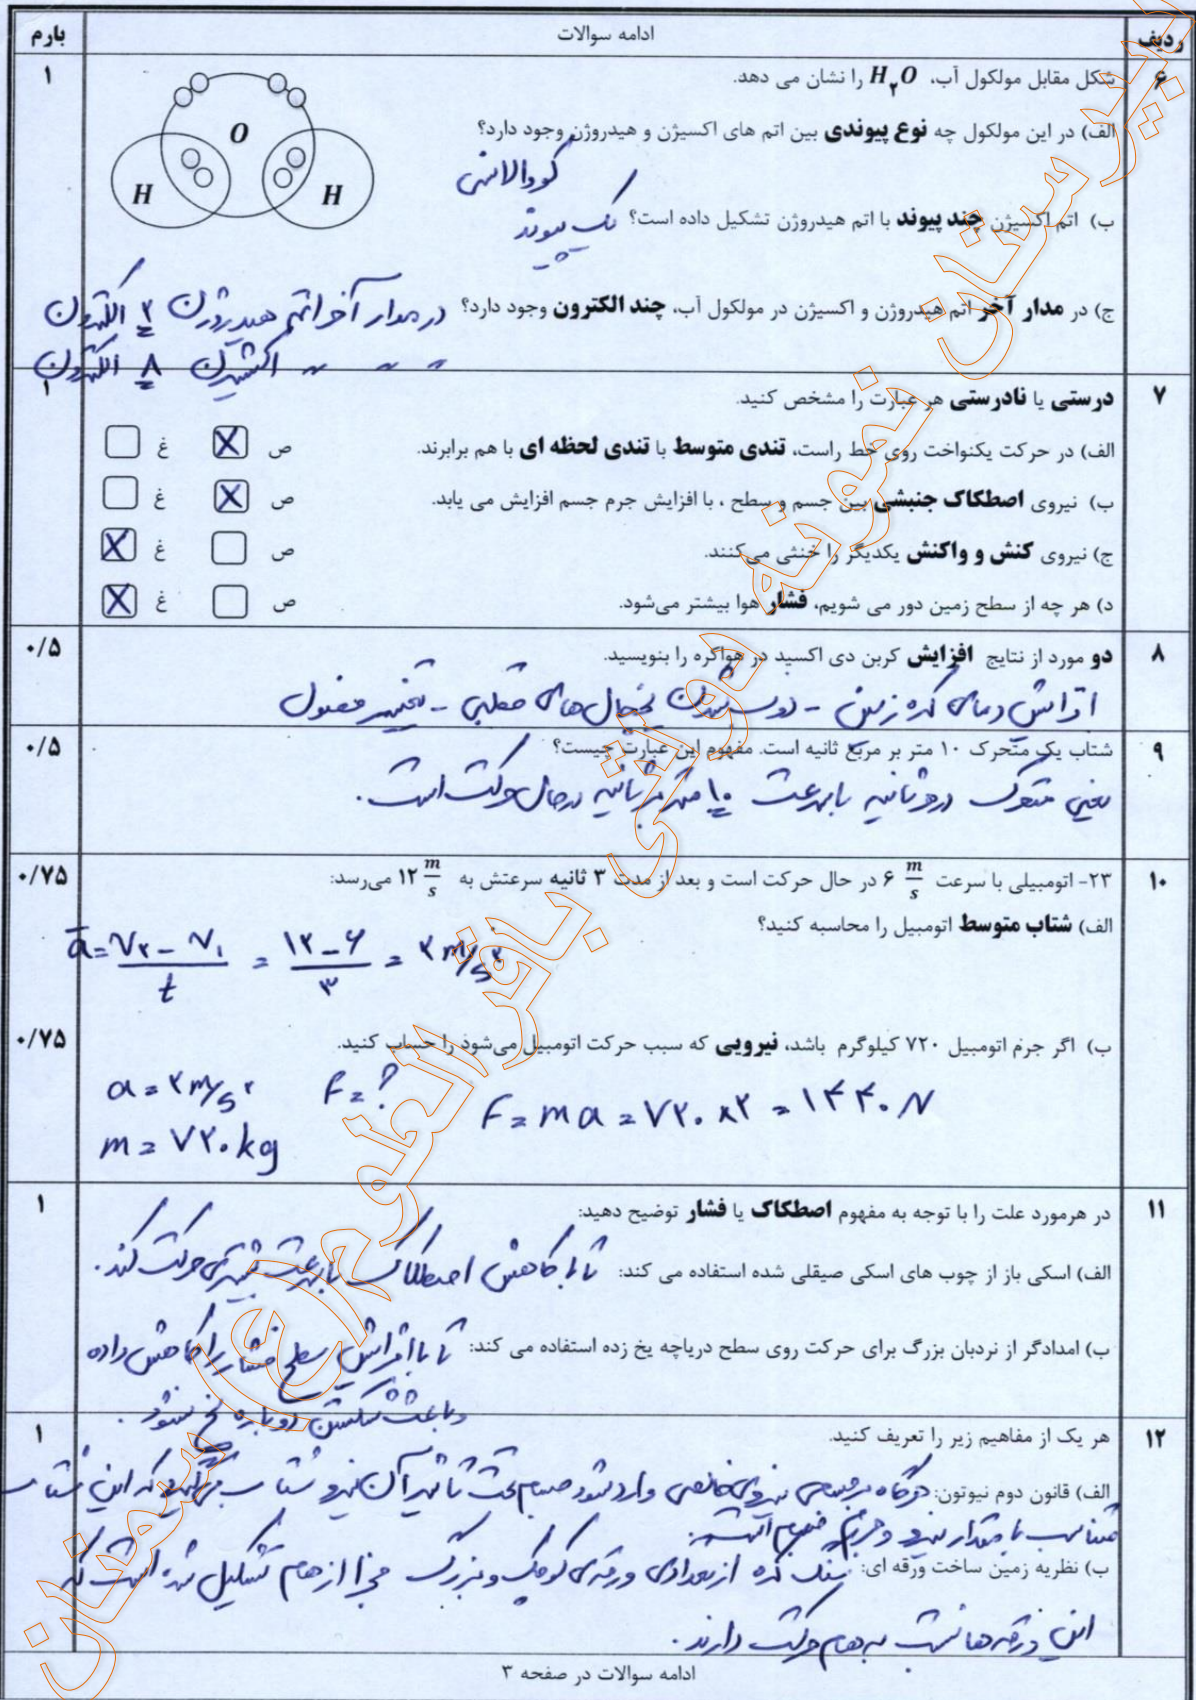 ردیف ادامه سوالات بارم
۶ شکل مقابل مولکول آب، H۲O را نشان می دهد. ۱
الف) در این مولکول چه نوع پیوندی بین اتم های اکسیژن و هیدروژن وجود دارد؟
کووالانسی
O
H H
ب) اتم اکسیژن چند پیوند با اتم هیدروژن تشکیل داده است؟ یک پیوند
ج) در مدار آخر اتم هیدروژن و اکسیژن در مولکول آب، چند الکترون وجود دارد؟ در مدار آخر اتم هیدروژن ۲ الکترون
" " " اکسیژن ۸ الکترون
۷ درستی یا نادرستی هر عبارت را مشخص کنید. ۱
الف) در حرکت یکنواخت روی خط راست، تندی متوسط با تندی لحظه ای با هم برابرند. ص X غ
ب) نیروی اصطکاک جنبشی بین جسم و سطح ، با افزایش جرم جسم افزایش می یابد. ص X غ
ج) نیروی کنش و واکنش یکدیگر را خنثی می‌کنند. ص غ X
د) هر چه از سطح زمین دور می شویم، فشار هوا بیشتر می‌شود. ص غ X
۸ دو مورد از نتایج افزایش کربن دی اکسید در هواکره را بنویسید. ۰/۵
افزایش دمای کره زمین - ذوب شدن یخچال های قطبی - تغییر فصول
۹ شتاب یک متحرک ۱۰ متر بر مربع ثانیه است. مفهوم این عبارت چیست؟ ۰/۵
یعنی متحرک در هر ثانیه با سرعت ۱۰ متر بر ثانیه در حال حرکت است.
۱۰ ۲۳- اتومبیلی با سرعت ۶ m/s در حال حرکت است و بعد از مدت ۳ ثانیه سرعتش به ۱۲ m/s می‌رسد: ۰/۷۵
الف) شتاب متوسط اتومبیل را محاسبه کنید؟
ā = (V۲ - V۱)/t = (۱۲ - ۶)/۳ = ۲ m/s۲
ب) اگر جرم اتومبیل ۷۲۰ کیلوگرم باشد، نیرویی که سبب حرکت اتومبیل می‌شود را حساب کنید. ۰/۷۵
a = ۲ m/s۲ F = ? F = ma = ۷۲۰ × ۲ = ۱۴۴۰ N
m = ۷۲۰ kg
۱۱ در هرمورد علت را با توجه به مفهوم اصطکاک یا فشار توضیح دهید: ۱
الف) اسکی باز از چوب های اسکی صیقلی شده استفاده می کند: تا با کاهش اصطکاک با سرعت بیشتری حرکت کند.
ب) امدادگر از نردبان بزرگ برای حرکت روی سطح دریاچه یخ زده استفاده می کند: تا با افزایش سطح فشار را کاهش داده
و باعث شکستن دوباره یخ نشود.
۱۲ هر یک از مفاهیم زیر را تعریف کنید. ۱
الف) قانون دوم نیوتون: هرگاه بر جسمی نیروی خالصی وارد شود جسم تحت تاثیر آن نیرو شتاب می گیرد که این شتاب
متناسب با مقدار نیرو و جرم جسم است.
ب) نظریه زمین ساخت ورقه ای: سنگ کره از تعدادی ورقه ی کوچک و بزرگ مجزا از هم تشکیل شده است که
این ورقه ها نسبت به هم حرکت دارند.
ادامه سوالات در صفحه ۳
دبیرستان نمونه دولتی باقرالعلوم (ع) سمنان